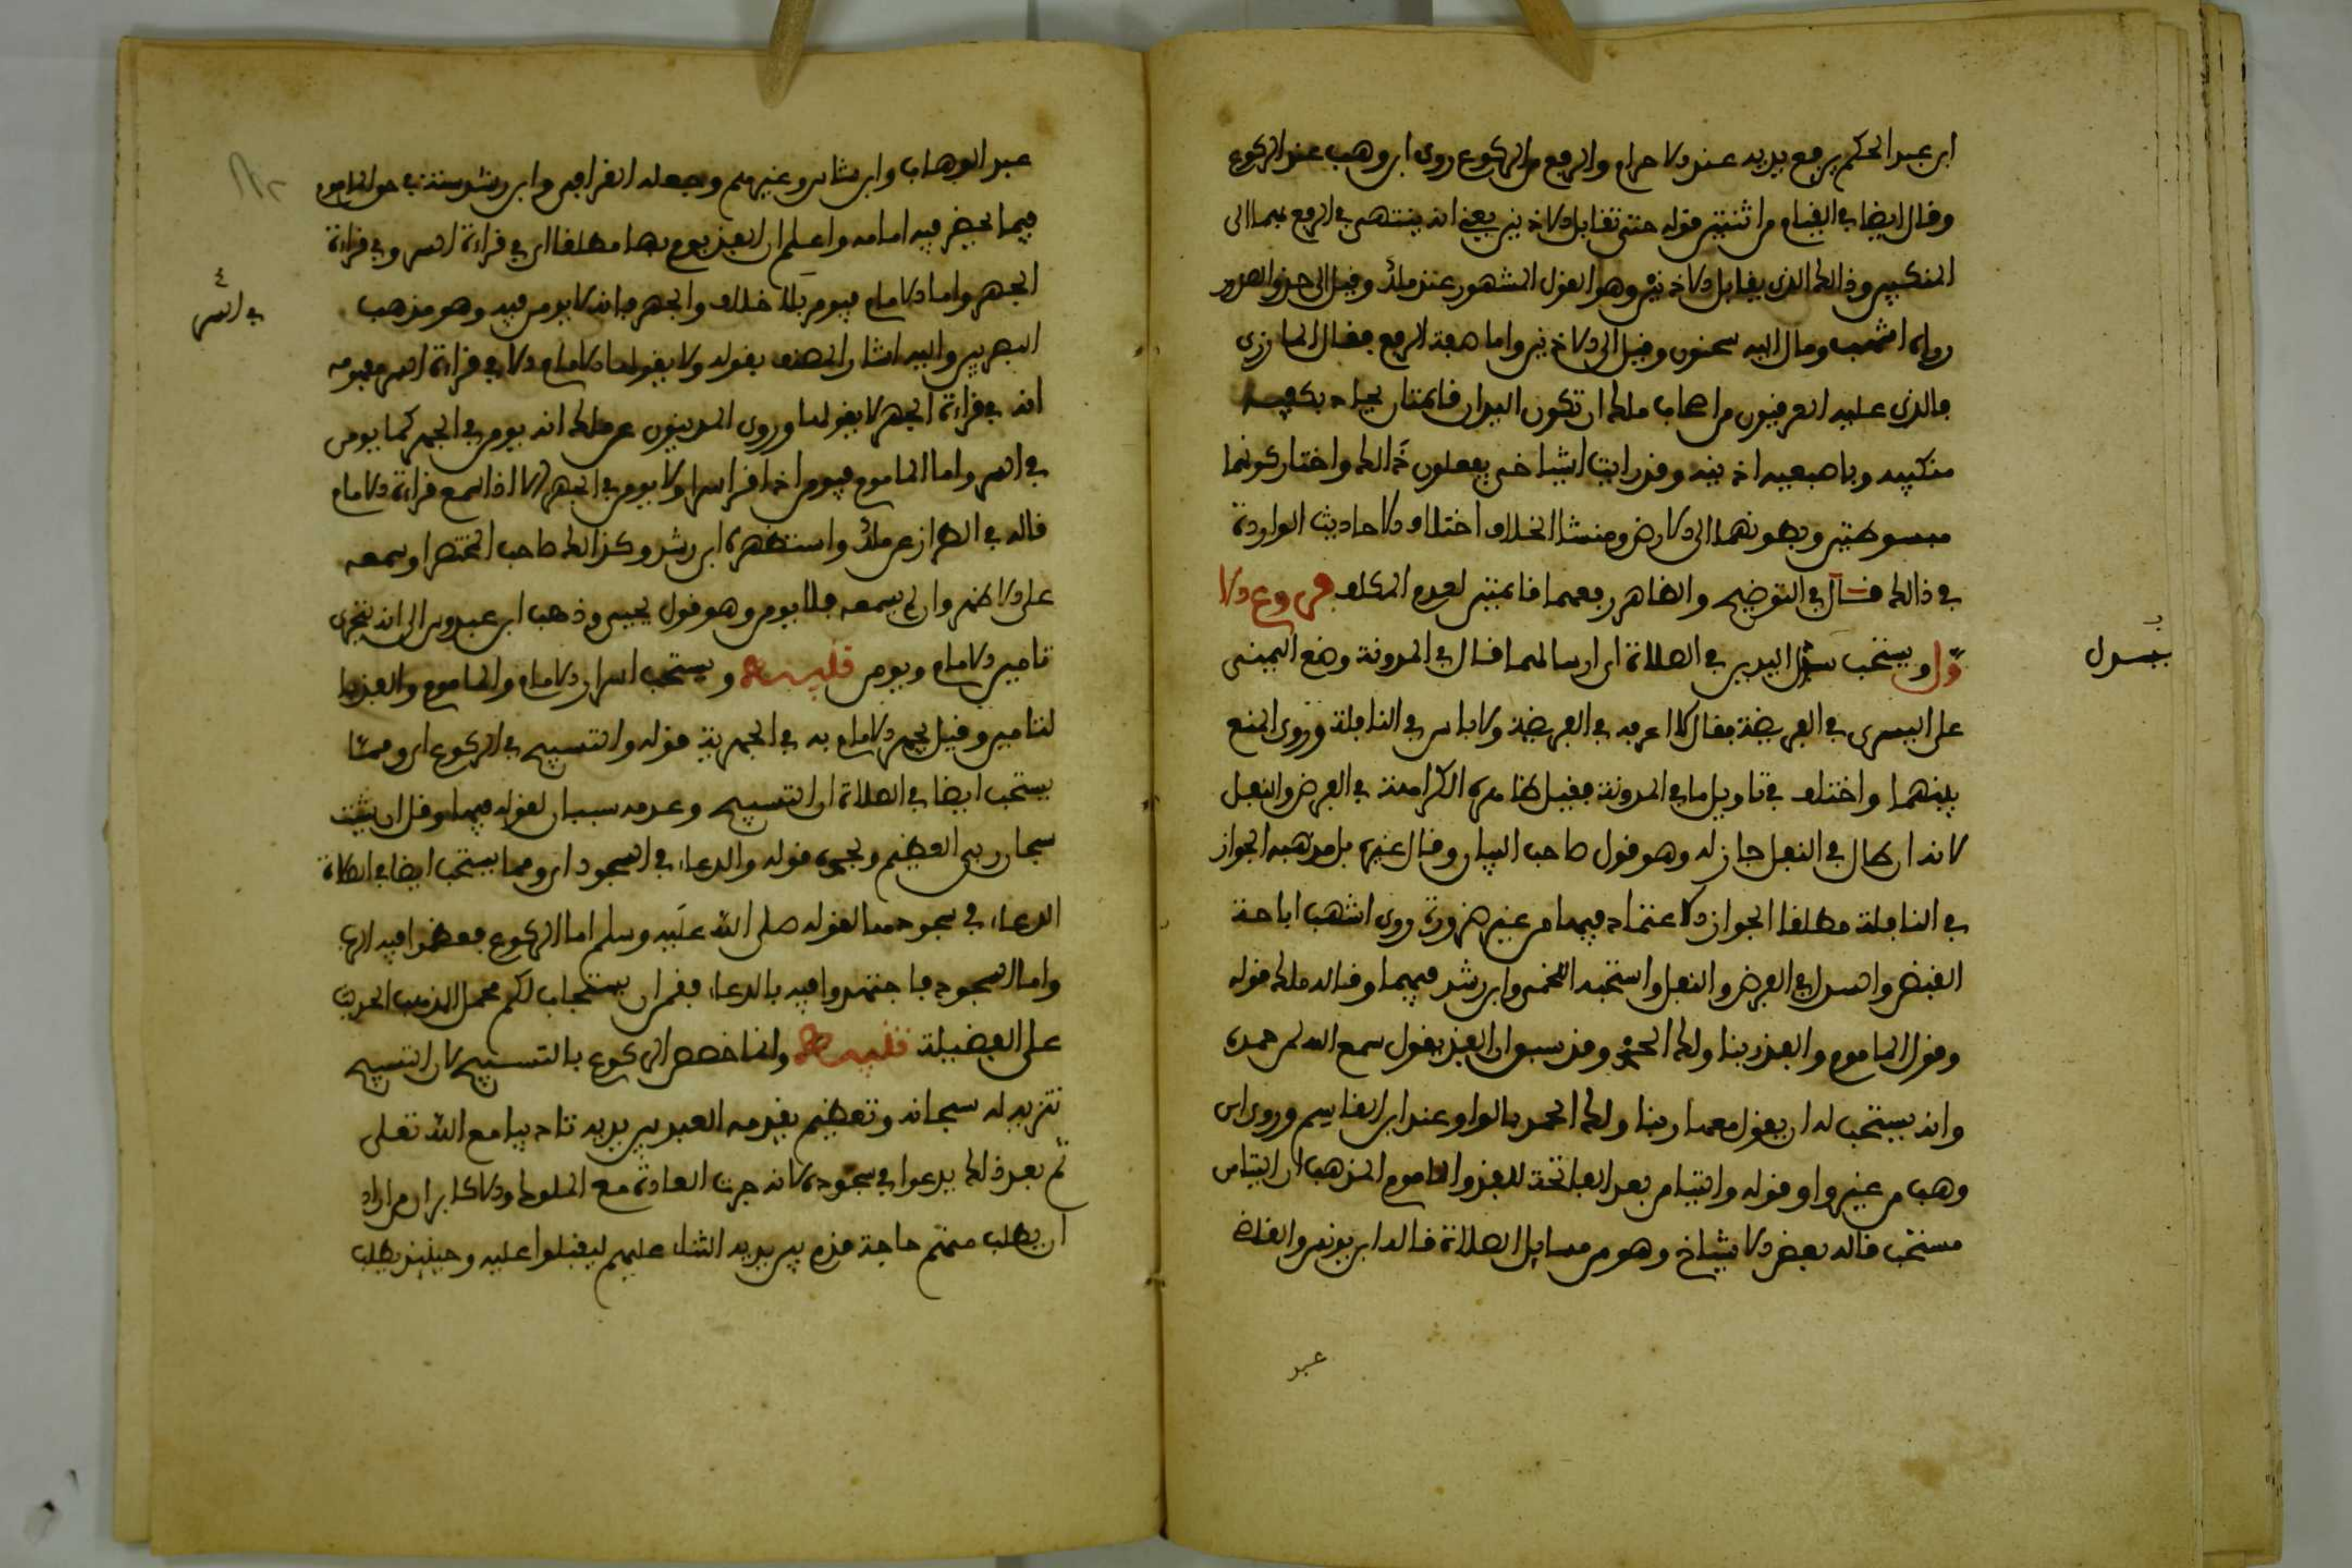 ابن عبد الحكم يرفع يديه عند الاحرام والرفع من الركوع روى ابن وهب عند الركوع
وقال ايضا في القيام من اثنتين قوله حتى تقابل الاذنين يعني انه ينتهي في الرفع بهما الى
المنكبين وذالك الذي يقابل الاذنين وهو القول المشهور عند ملك وقيل الى حذو الصدر
رواه اشهب ومال اليه سحنون وقيل الى الاذنين واما صفة الرفع فقال المازري
والذي عليه العرفيون من اصحاب ملك ان تكون اليدان قائمتان يحاذ بكفيه
منكبيه وباصبعيه اذنيه وقد رايت اشياخي يفعلون ذالك واختار كونهما
مبسوطتين وبطونهما الى الارض ومنشا الخلاف اختلاف الاحاديث الواردة
في ذالك قال في التوضيح والظاهر رفعهما قائمتين لعدم التكلف فروع الا
ول ويستحب سدل اليدين في الصلاة اي ارسالهما قال في المدونة وضع اليمنى
يسدل
على اليسرى في الفريضة فقال لا اعرفه في الفريضة ولا باس في النافلة وروى المنع
بينهما واختلف في تاويل ما في المدونة فقيل ظاهره الكراهة في الفرض والنفل
لانه ان طال في النفل جاز له وهو قول صاحب البيان وقال غيره بل مذهبه الجواز
في النافلة مطلقا الجواز الاعتماد فيها من غير ضرورة روى اشهب اباحة
القبض والسدل في الفرض والنفل واستحبه اللخمي وابن رشد فيهما وقاله ملك قوله
وقول الماموم والفذ ربنا ولك الحمد وقد سبق ان الفذ يقول سمع الله لمن حمده
وانه يستحب له ان يقول معها ربنا ولك الحمد بالواو عند ابن القاسم وروى ابن
وهب من غير واو قوله والتيامن بعد الفاتحة للفذ والماموم المذهب ان التيامن
مستحب قاله بعض الاشياخ وهو من مسايل الصلاة قاله ابن يونس والقاضي
عبد
عبد الوهاب وابن شاس وغيرهم وجعله القرافي وابن رشد سنة حق الماموم
فيما يحضر فيه امامه واعلم ان الفذ يومن مطلقا اي في قراءة السر وفي قراءة
الجهر واما الامام فيومن بلا خلاف والجهر فانه لا يومن فيه وهو مذهب
في السر
المصريين واليه اشار المصنف بقوله ولا يقولها الامام الا في قراءة السر مفهومه
انه في قراءة الجهر لا يقولها وروى المدنيون عن ملك انه يومن في الجهر كما يومن
في السر واما الماموم فيومن اذا قرا سرا ولا يومن في الجهر الا اذا سمع قراءة الامام
قاله في الطراز عن ملك واستظهره ابن رشد وكذالك صاحب المختصر او سمعه
على الاظهر وان لم يسمعه فلا يومن وهو قول يحيى وذهب ابن عبدوس الى انه يتحرى
تامين الامام ويومن تنبيه ويستحب اسرار الامام والماموم والفذ بها
لتامين وقيل يجهر الامام به في الجهرية قوله والتسبيح في الركوع اي ومما
يستحب ايضا في الصلاة التسبيح وعدمه سببان لقوله فيها وقال ان شئت
سبحان ربي العظيم ونحوه قوله والدعاء في السجود اي ومما يستحب ايضا في الصلاة
الدعاء في سجودها لقوله صلى الله عليه وسلم اما الركوع فعظموا فيه الرب
واما السجود فاجتهدوا فيه بالدعاء فقمن ان يستجاب لكم محمل المذهب الحديث
على الفضيلة تنبيه وانما خصص الركوع بالتسبيح لان التسبيح
تنزيه له سبحانه وتعظيم يقدمه العبد بين يديه تادبا مع الله تعلى
ثم بعد ذلك يدعوا في سجوده لانه جرت العادة مع الملوك والاكابر ان من اراد
ان يطلب منهم حاجة قدم بين يديه الثناء عليهم ليقبلوا عليه وحينيذ يطلب